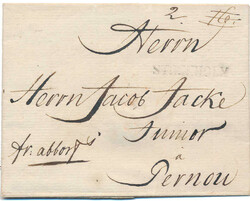 2.
Herrn
Herrn Jacob Jacke
Junior
fr:
à
Pernou